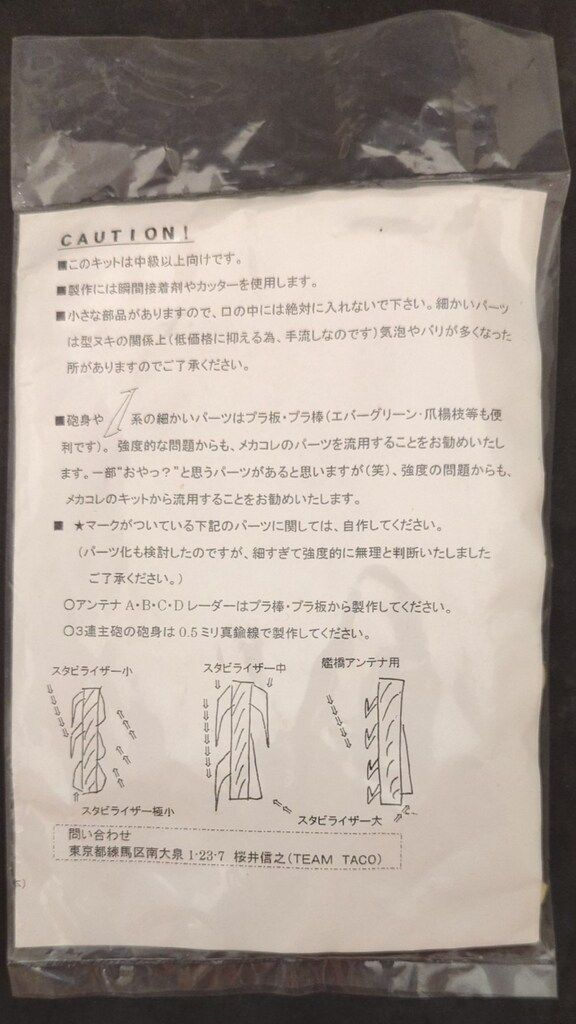 CAUTION!
■このキットは中級以上向けです。
■製作には瞬間接着剤やカッターを使用します。
■小さな部品がありますので、口の中には絶対に入れないで下さい。細かいパーツ
は型ヌキの関係上(低価格に抑える為、手流しなのです)気泡やバリが多くなった
所がありますのでご了承ください。
■砲身や 系の細かいパーツはプラ板・プラ棒(エバーグリーン・爪楊枝等も便
利です)。強度的な問題からも、メカコレのパーツを流用することをお勧めいたし
ます。一部“おやっ?”と思うパーツがあると思いますが(笑)、強度の問題からも、
メカコレのキットから流用することをお勧めいたします。
■ ★マークがついている下記のパーツに関しては、自作してください。
(パーツ化も検討したのですが、細すぎて強度的に無理と判断いたしました
ご了承ください。)
○アンテナA・B・C・Dレーダーはプラ棒・プラ板から製作してください。
○3連主砲の砲身は0.5ミリ真鍮線で製作してください。
スタビライザー小
スタビライザー中
艦橋アンテナ用
スタビライザー極小
スタビライザー大
問い合わせ
東京都練馬区南大泉1-23-7 桜井信之(TEAM TACO)